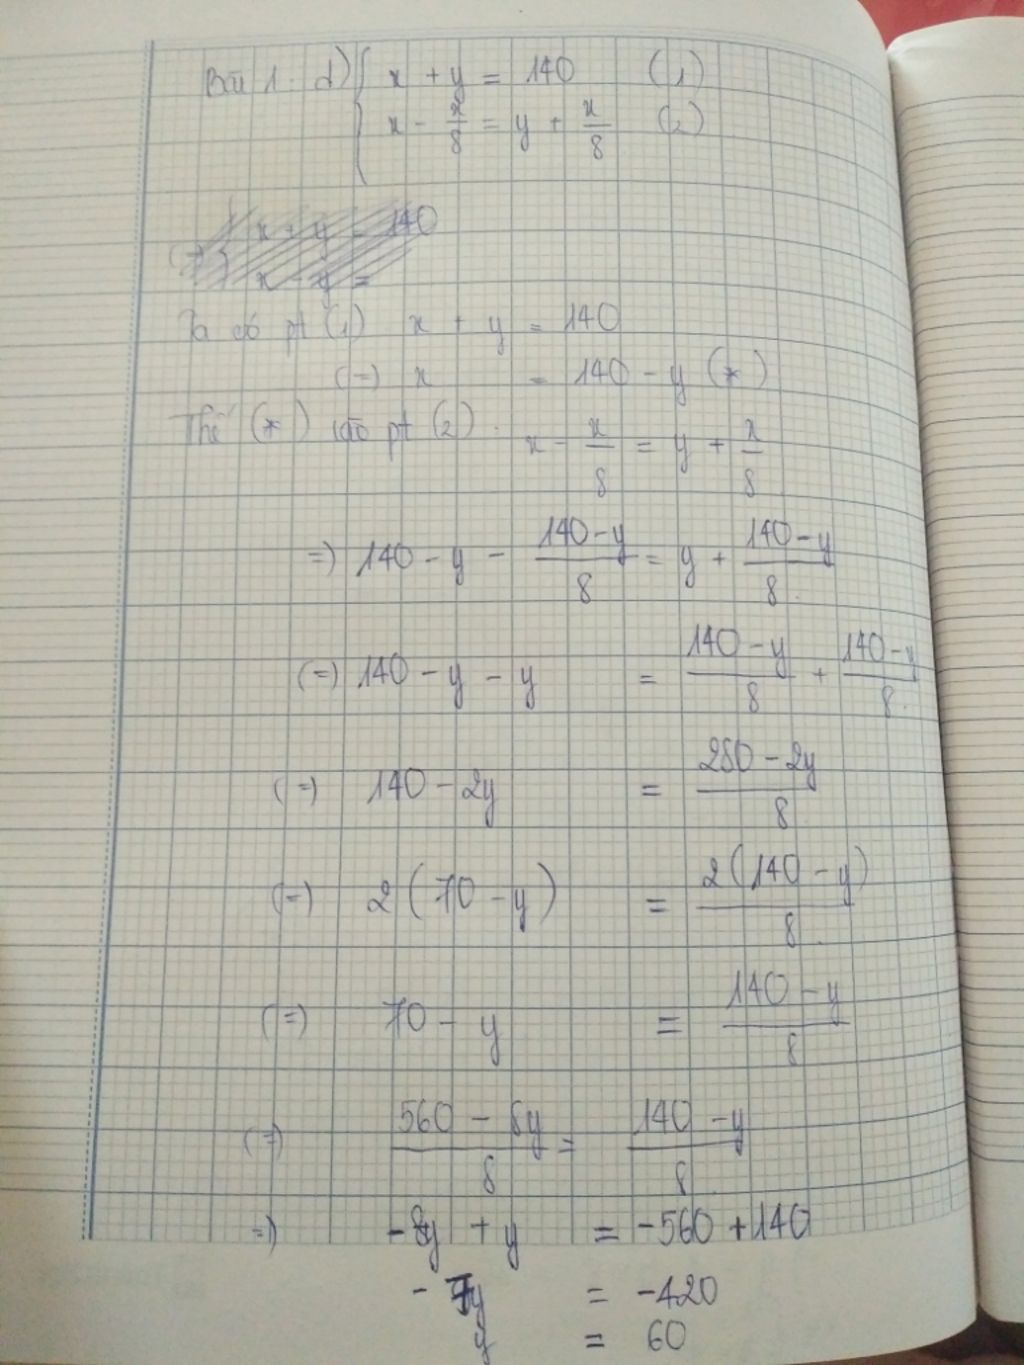 Bài 1. d) { x + y = 140 (1)
x - x/8 = y + x/8 (2)
x + y = 140
x - y =
Ta có pt (1) x + y = 140
(=) x = 140 - y (*)
Thế (*) vào pt (2). x - x/8 = y + x/8
=) 140 - y - (140 - y)/8 = y + (140 - y)/8
(=) 140 - y - y = (140 - y)/8 + (140 - y)/8
(=) 140 - 2y = (280 - 2y)/8
(=) 2(70 - y) = 2(140 - y)/8
(=) 70 - y = (140 - y)/8
(=) (560 - 8y)/8 = (140 - y)/8
=) -8y + y = -560 + 140
-7y = -420
y = 60